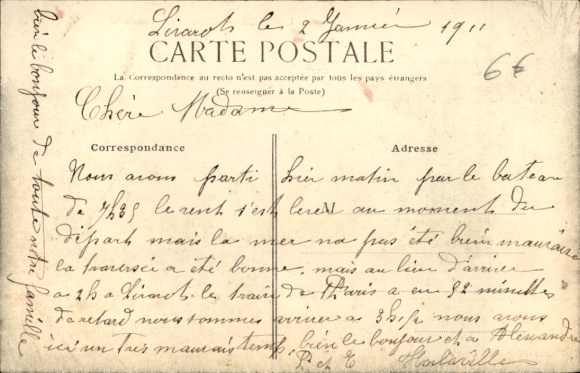 Livarot le 2 Janvier 1911
CARTE POSTALE
La Correspondance au recto n'est pas acceptée par tous les pays étrangers
(Se renseigner à la Poste)
6€
Chère Madame
Correspondance
Adresse
Nous avons parti hier matin par le bateau
de 7h35 le vent s'est levé au moment du
départ mais la mer na pas été bien mauvaise
la traversée a été bonne. mais au lieu d'arriver
a 2h a Livarot le train de Paris a eu 52 minutes
de retard nous sommes arrivé a 3h½ nous avons
ici un très mauvais temps, bien le bonjour et a Alexandre
P. et E
bien le bonjour de toute notre famille